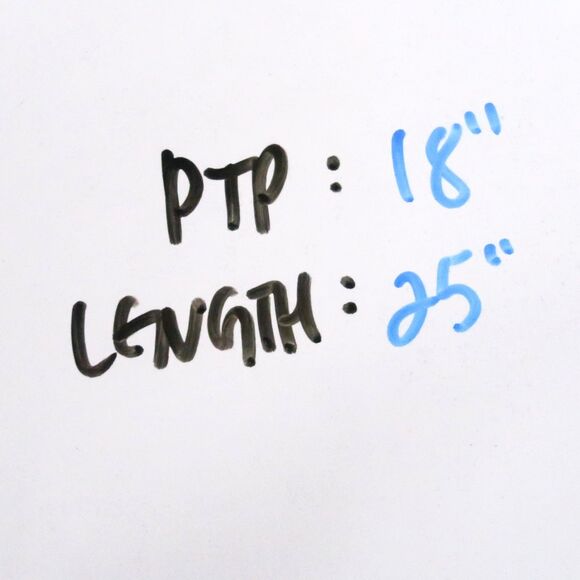 PTP: 18"
LENGTH: 25"